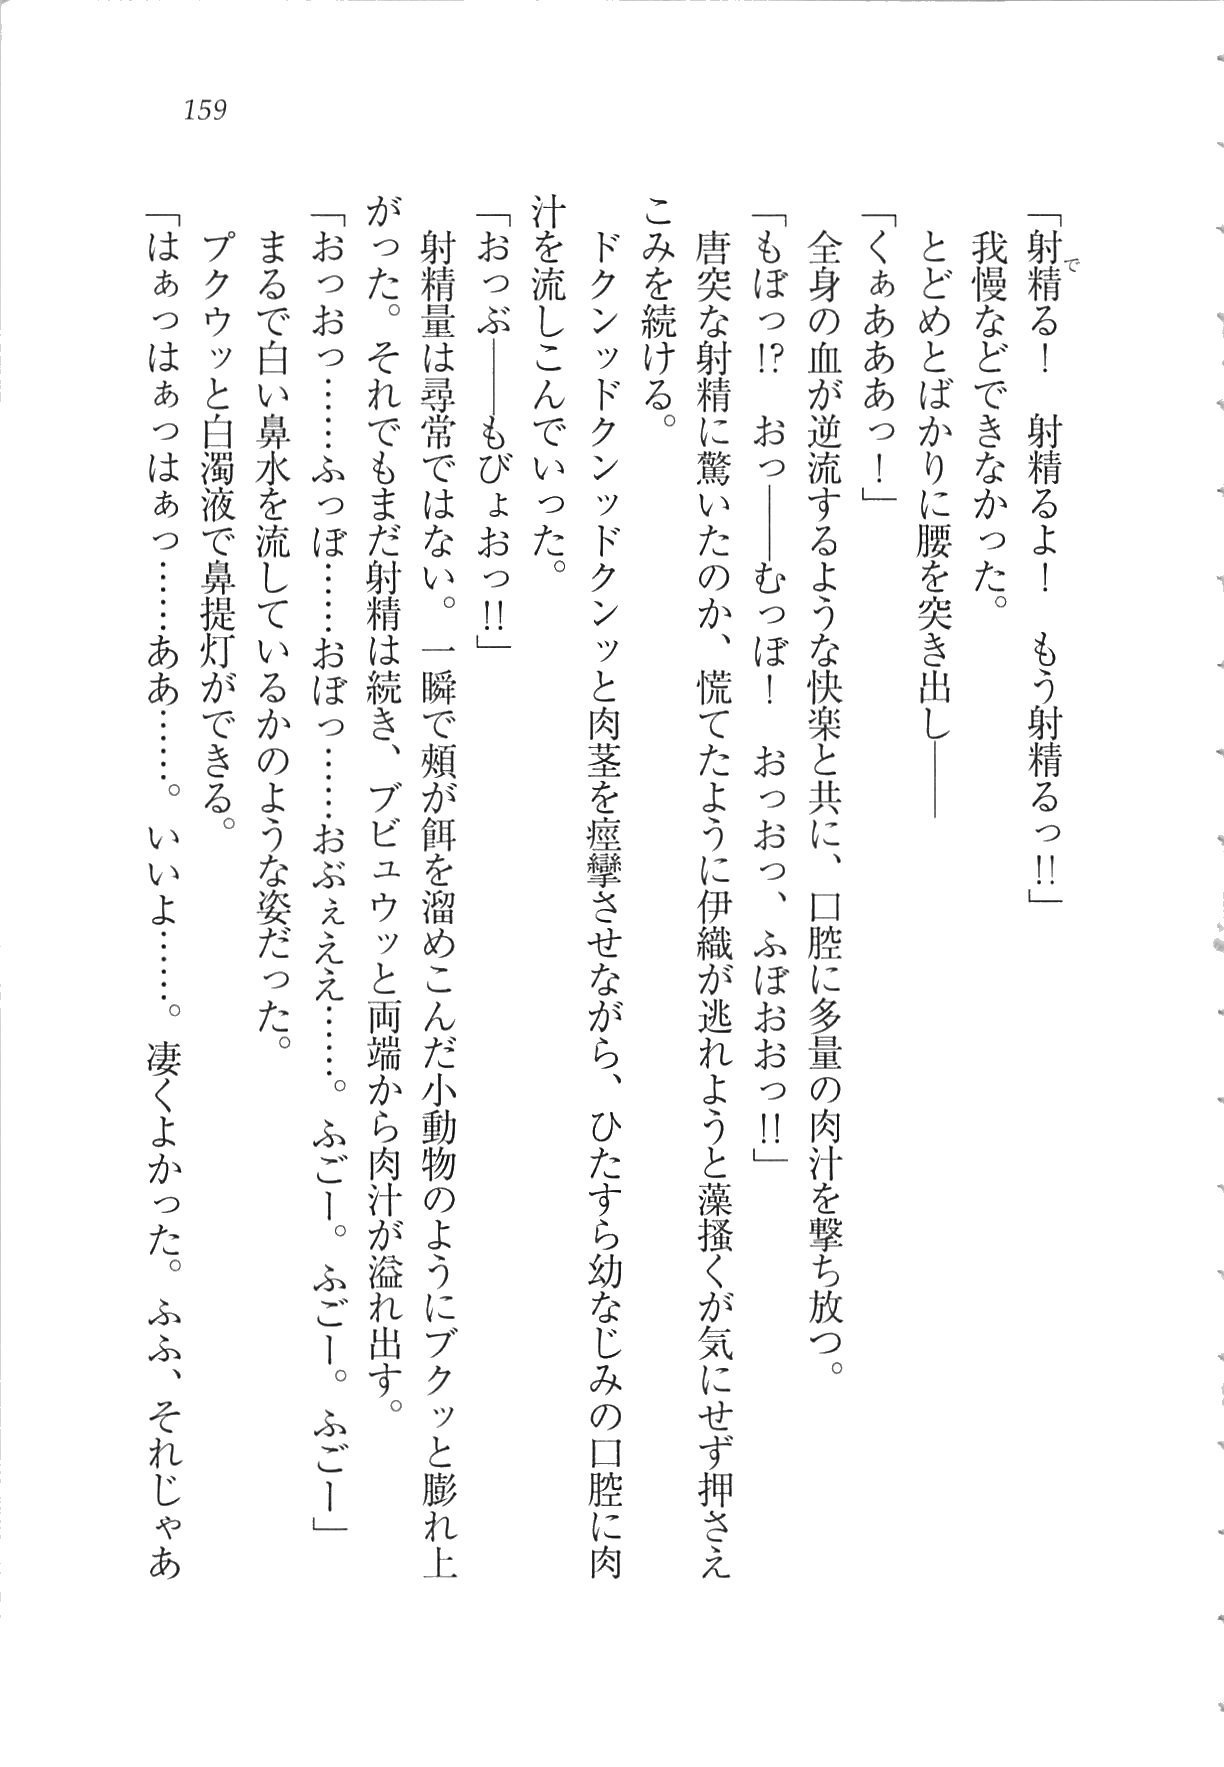 159
「射精る！　射精るよ！　もう射精るっ!!」
で
我慢などできなかった。
とどめとばかりに腰を突き出し――
「くぁあああっ！」
全身の血が逆流するような快楽と共に、口腔に多量の肉汁を撃ち放つ。
「もぼっ!?　おっ――むっぼ！　おっおっ、ふぼおおっ!!」
唐突な射精に驚いたのか、慌てたように伊織が逃れようと藻掻くが気にせず押さえ
こみを続ける。
ドクンッドクンッドクンッと肉茎を痙攣させながら、ひたすら幼なじみの口腔に肉
汁を流しこんでいった。
「おっぶ――もびょおっ!!」
射精量は尋常ではない。一瞬で頰が餌を溜めこんだ小動物のようにブクッと膨れ上
がった。それでもまだ射精は続き、ブビュウッと両端から肉汁が溢れ出す。
「おっおっ……ふっぼ……おぼっ……おぶぇええ……。ふごー。ふごー。ふごー」
まるで白い鼻水を流しているかのような姿だった。
プクウッと白濁液で鼻提灯ができる。
「はぁっはぁっはぁっ……ああ……。いいよ……。凄くよかった。ふふ、それじゃあ